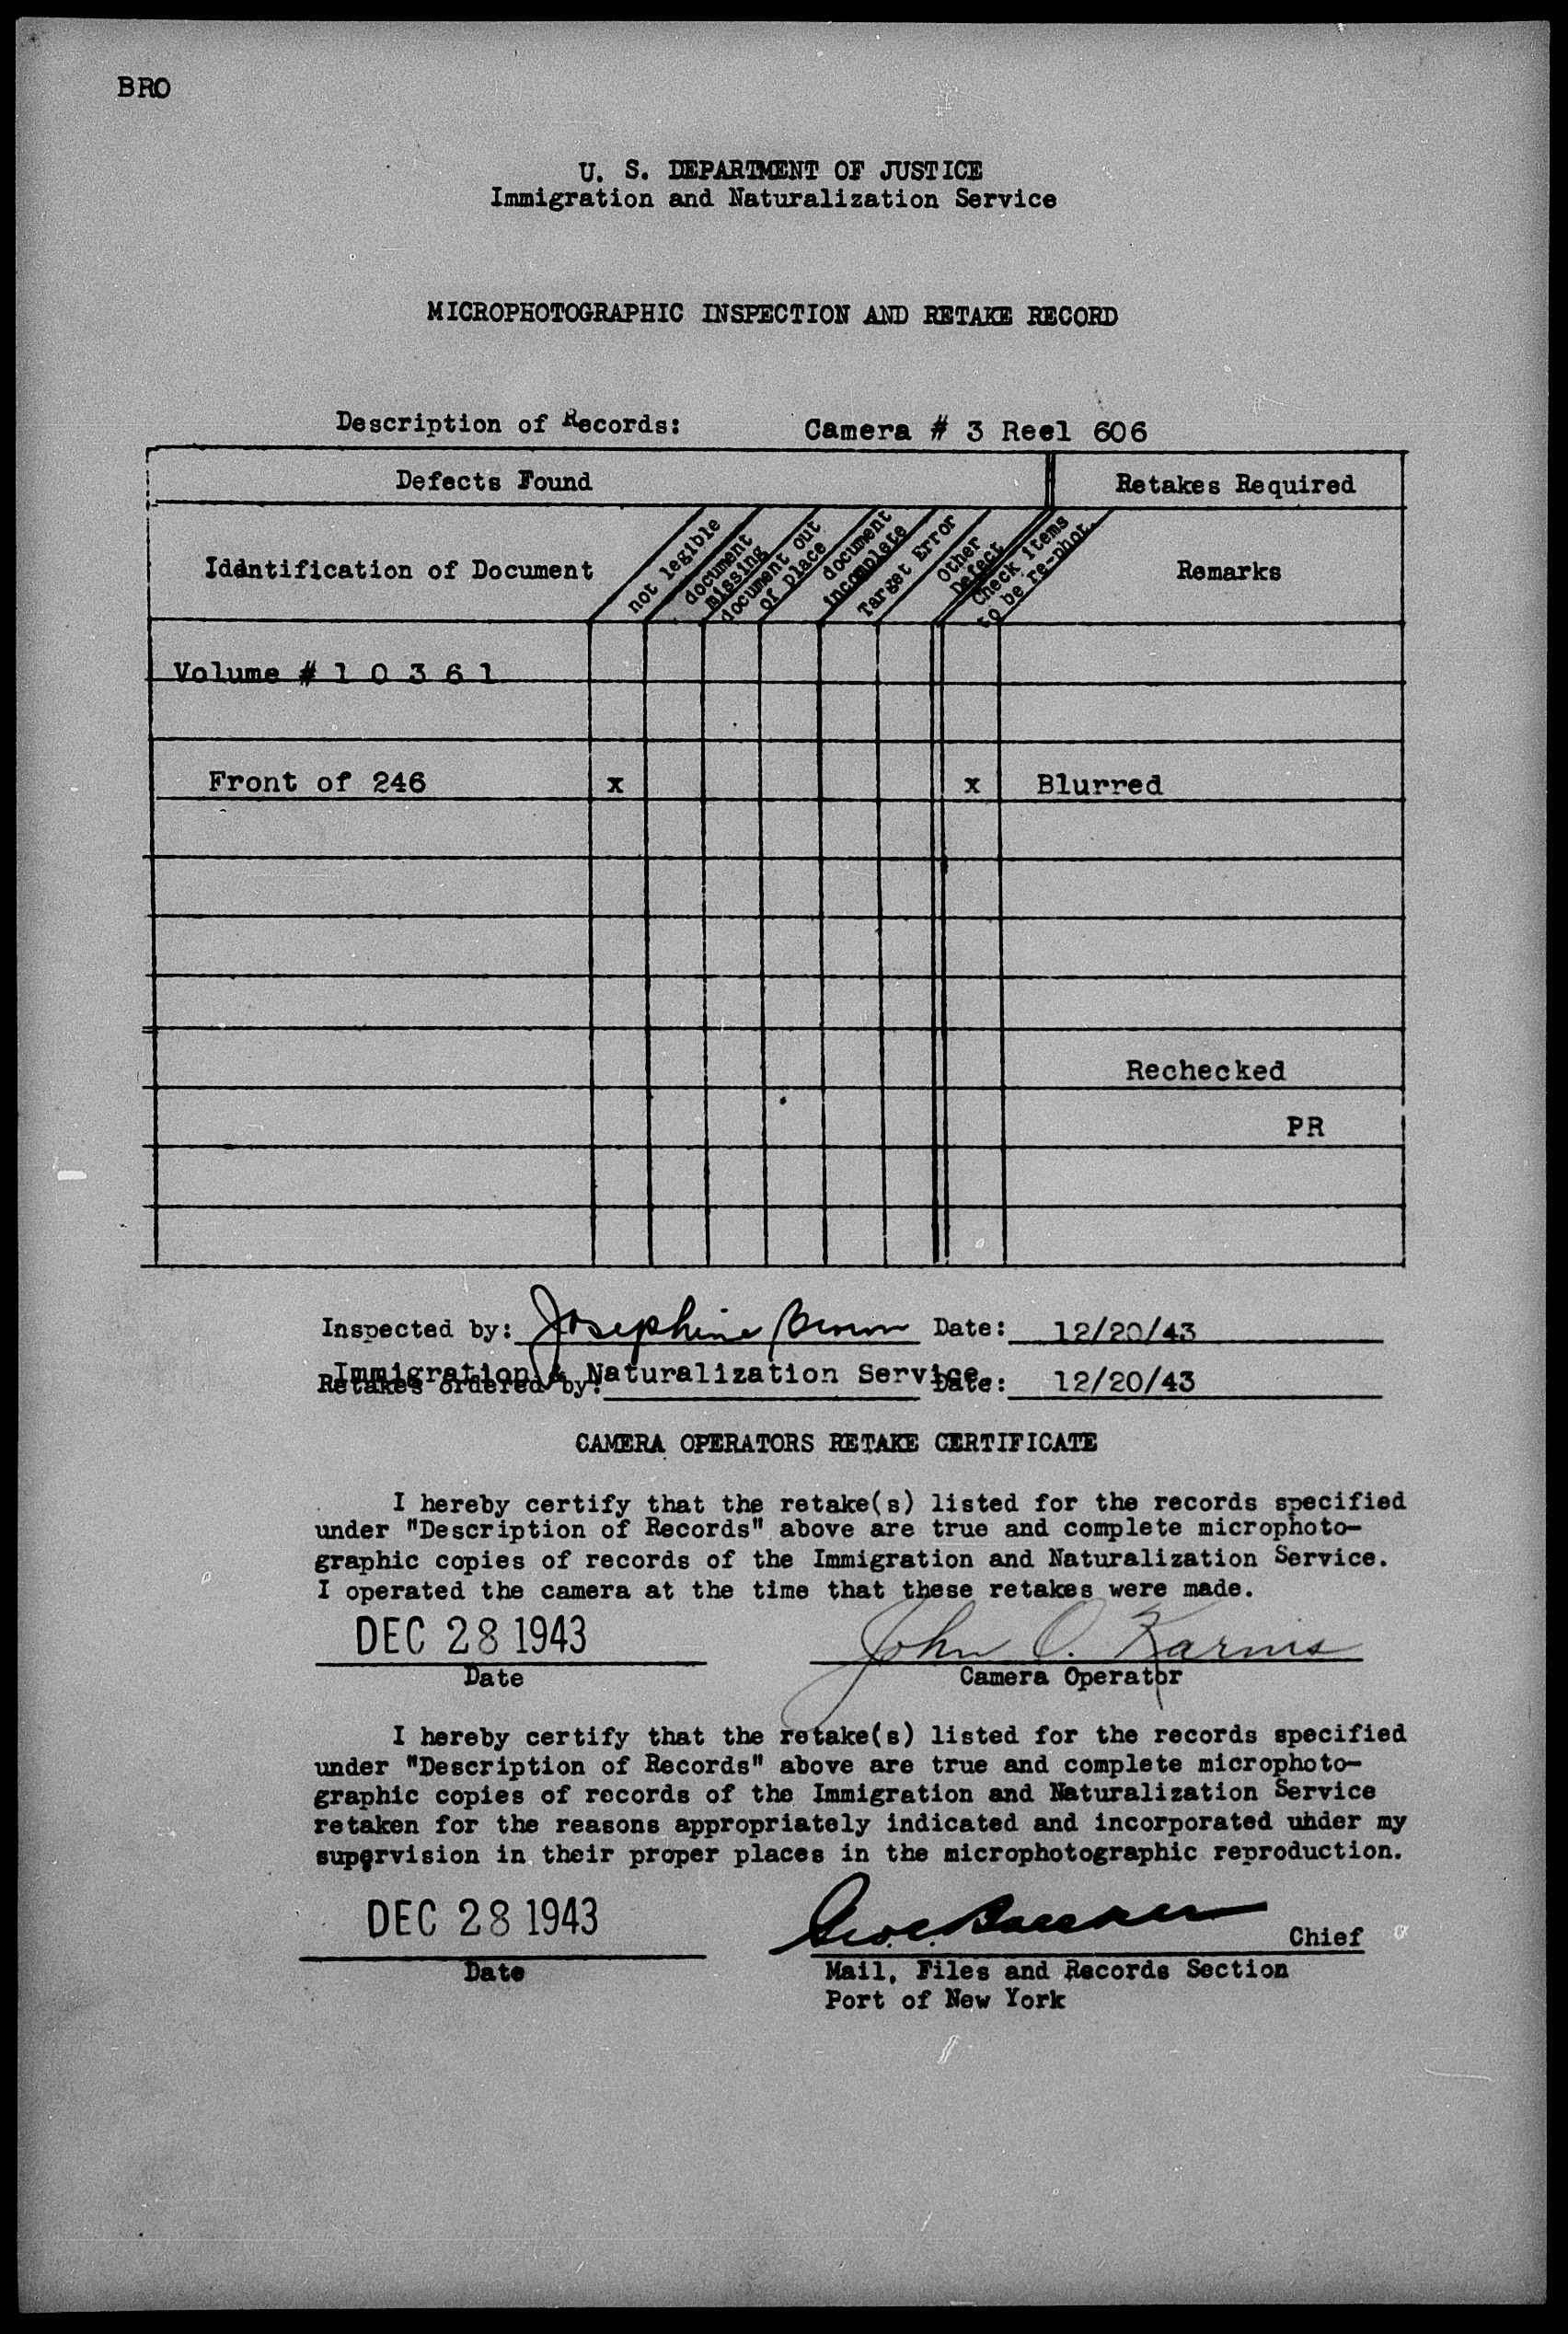 BRO
U. S. DEPARTMENT OF JUSTICE
Immigration and Naturalization Service
MICROPHOTOGRAPHIC INSPECTION AND RETAKE RECORD
Description of Records: Camera # 3 Reel 606
Defects Found Retakes Required
Identification of Document
not legible
document missing
document out of place
document incomplete
Target Error
Other Defect
Check items to be re-phot.
Remarks
Volume # 1 0 3 6 1
Front of 246 x x Blurred
Rechecked
PR
Inspected by: Josephine Brown Date: 12/20/43
Immigration & Naturalization Service
Retakes ordered by: Date: 12/20/43
CAMERA OPERATORS RETAKE CERTIFICATE
I hereby certify that the retake(s) listed for the records specified
under "Description of Records" above are true and complete microphoto-
graphic copies of records of the Immigration and Naturalization Service.
I operated the camera at the time that these retakes were made.
DEC 28 1943 John O. Karins
Date Camera Operator
I hereby certify that the retake(s) listed for the records specified
under "Description of Records" above are true and complete microphoto-
graphic copies of records of the Immigration and Naturalization Service
retaken for the reasons appropriately indicated and incorporated under my
supervision in their proper places in the microphotographic reproduction.
DEC 28 1943
Chief
Date Mail, Files and Records Section
Port of New York